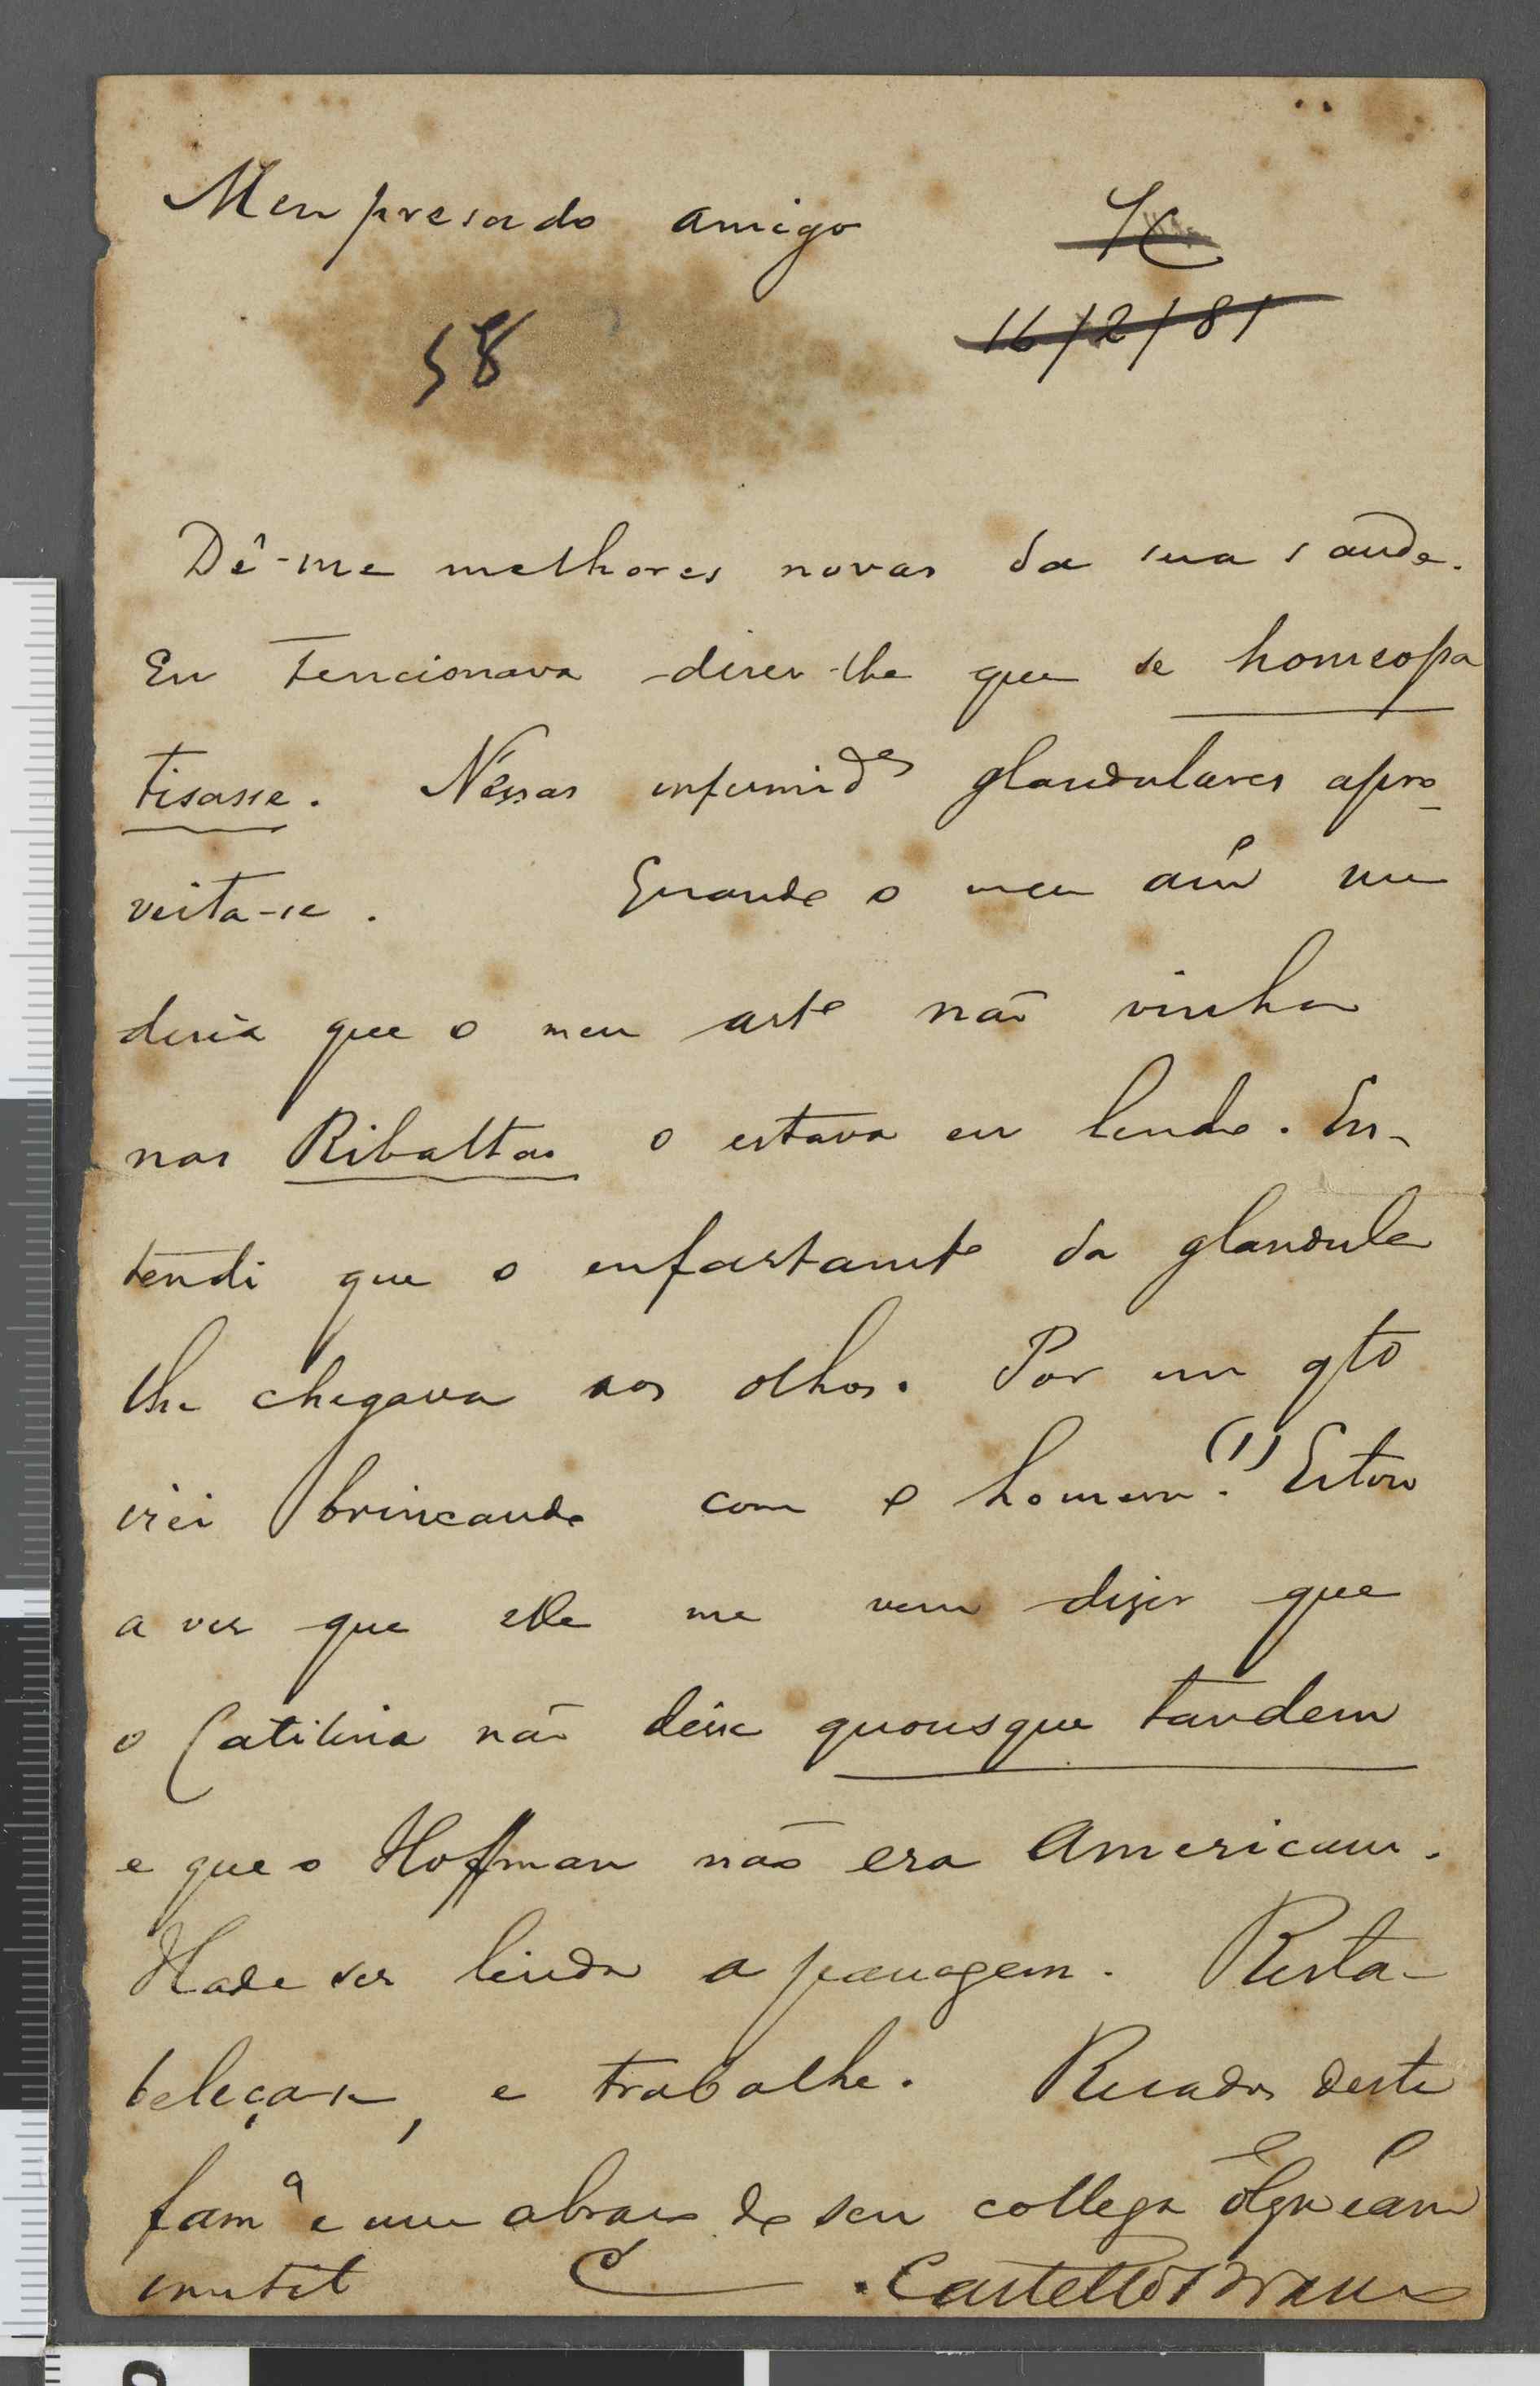 Meu presado amigo
16/2/81
58
Dê-me melhores novas da sua saude.
Eu tencionava dizer-lhe que se homeopa
tisasse. Nessas enfermid.es glandulares apro-
veita-se. Quando o meu am.o me
disia que o meu art.o não vinha
nas Ribaltas o estava eu lendo. En-
tendi que o enfartam.to da glandula
lhe chegava aos olhos. Por em q.to
irei brincando com o homem (1). Estou
a ver que elle me vem dizer que
o Catilina não disse quousque tandem
e que o Hoffman não era Americano.
Hade ser linda a passagem. Resta-
beleça-se, e trabalhe. Recados desta
fam.a e um abraço de seu collega e am.o
inutil C. Castello Branco